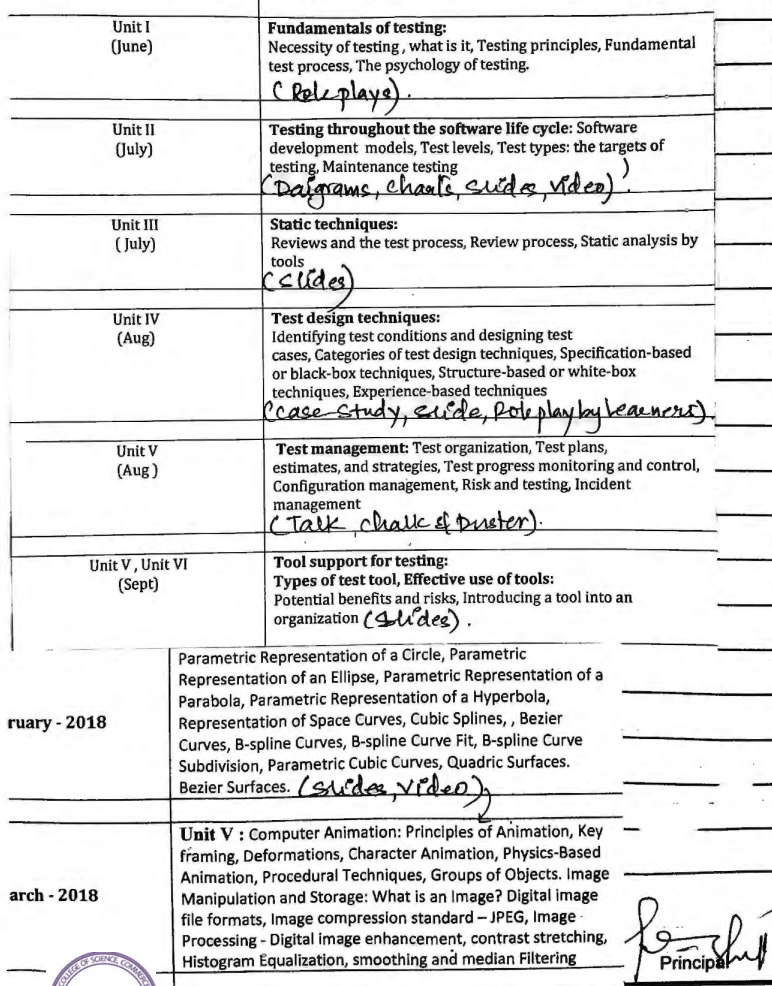 Unit I
(June)
Fundamentals of testing:
Necessity of testing, what is it, Testing principles, Fundamental
test process, The psychology of testing.
(Role plays).
Unit II
(July)
Testing throughout the software life cycle: Software
development models, Test levels, Test types: the targets of
testing, Maintenance testing
(Daigrams, chaats, slides, video).
Unit III
( July)
Static techniques:
Reviews and the test process, Review process, Static analysis by
tools
(slides)
Unit IV
(Aug)
Test design techniques:
Identifying test conditions and designing test
cases, Categories of test design techniques, Specification-based
or black-box techniques, Structure-based or white-box
techniques, Experience-based techniques
(case study, slide, Role play by learners).
Unit V
(Aug )
Test management: Test organization, Test plans,
estimates, and strategies, Test progress monitoring and control,
Configuration management, Risk and testing, Incident
management
(Talk, chalk & Duster).
Unit V , Unit VI
(Sept)
Tool support for testing:
Types of test tool, Effective use of tools:
Potential benefits and risks, Introducing a tool into an
organization (Slides).
ruary - 2018
Parametric Representation of a Circle, Parametric
Representation of an Ellipse, Parametric Representation of a
Parabola, Parametric Representation of a Hyperbola,
Representation of Space Curves, Cubic Splines, , Bezier
Curves, B-spline Curves, B-spline Curve Fit, B-spline Curve
Subdivision, Parametric Cubic Curves, Quadric Surfaces.
Bezier Surfaces. (slides, video)
arch - 2018
Unit V : Computer Animation: Principles of Animation, Key
framing, Deformations, Character Animation, Physics-Based
Animation, Procedural Techniques, Groups of Objects. Image
Manipulation and Storage: What is an Image? Digital image
file formats, Image compression standard – JPEG, Image
Processing - Digital image enhancement, contrast stretching,
Histogram Equalization, smoothing and median Filtering
Principal
COLLEGE OF SCIENCE, COMMERCE